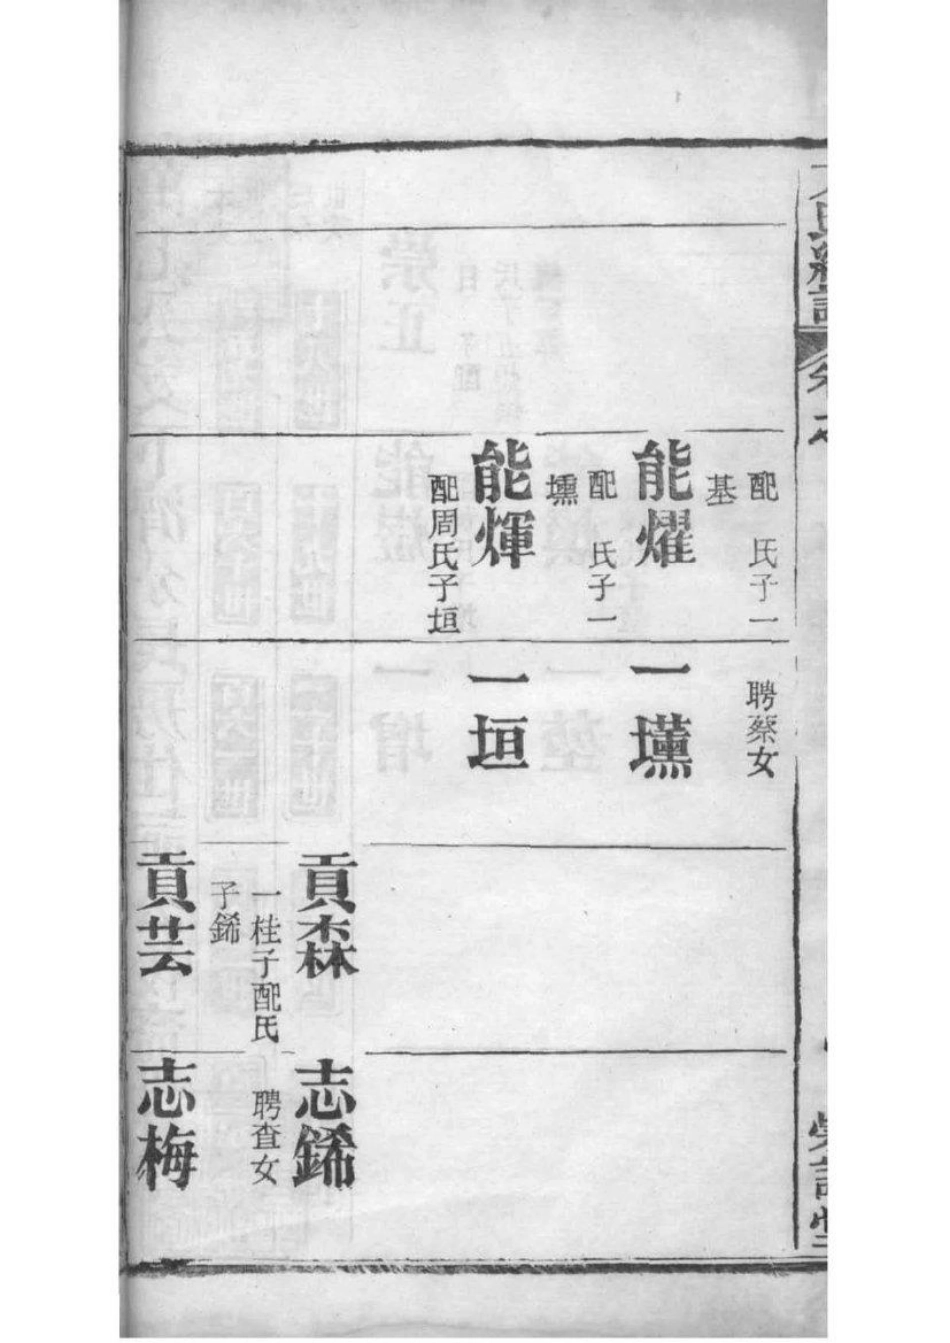 配　氏子一
基
能燿
配　氏子一
壎
能煇
配周氏子垣
聘蔡女
一壎
一垣
貢森
一桂子配氏
子鏴
貢芸
志鏴
聘查女
志梅